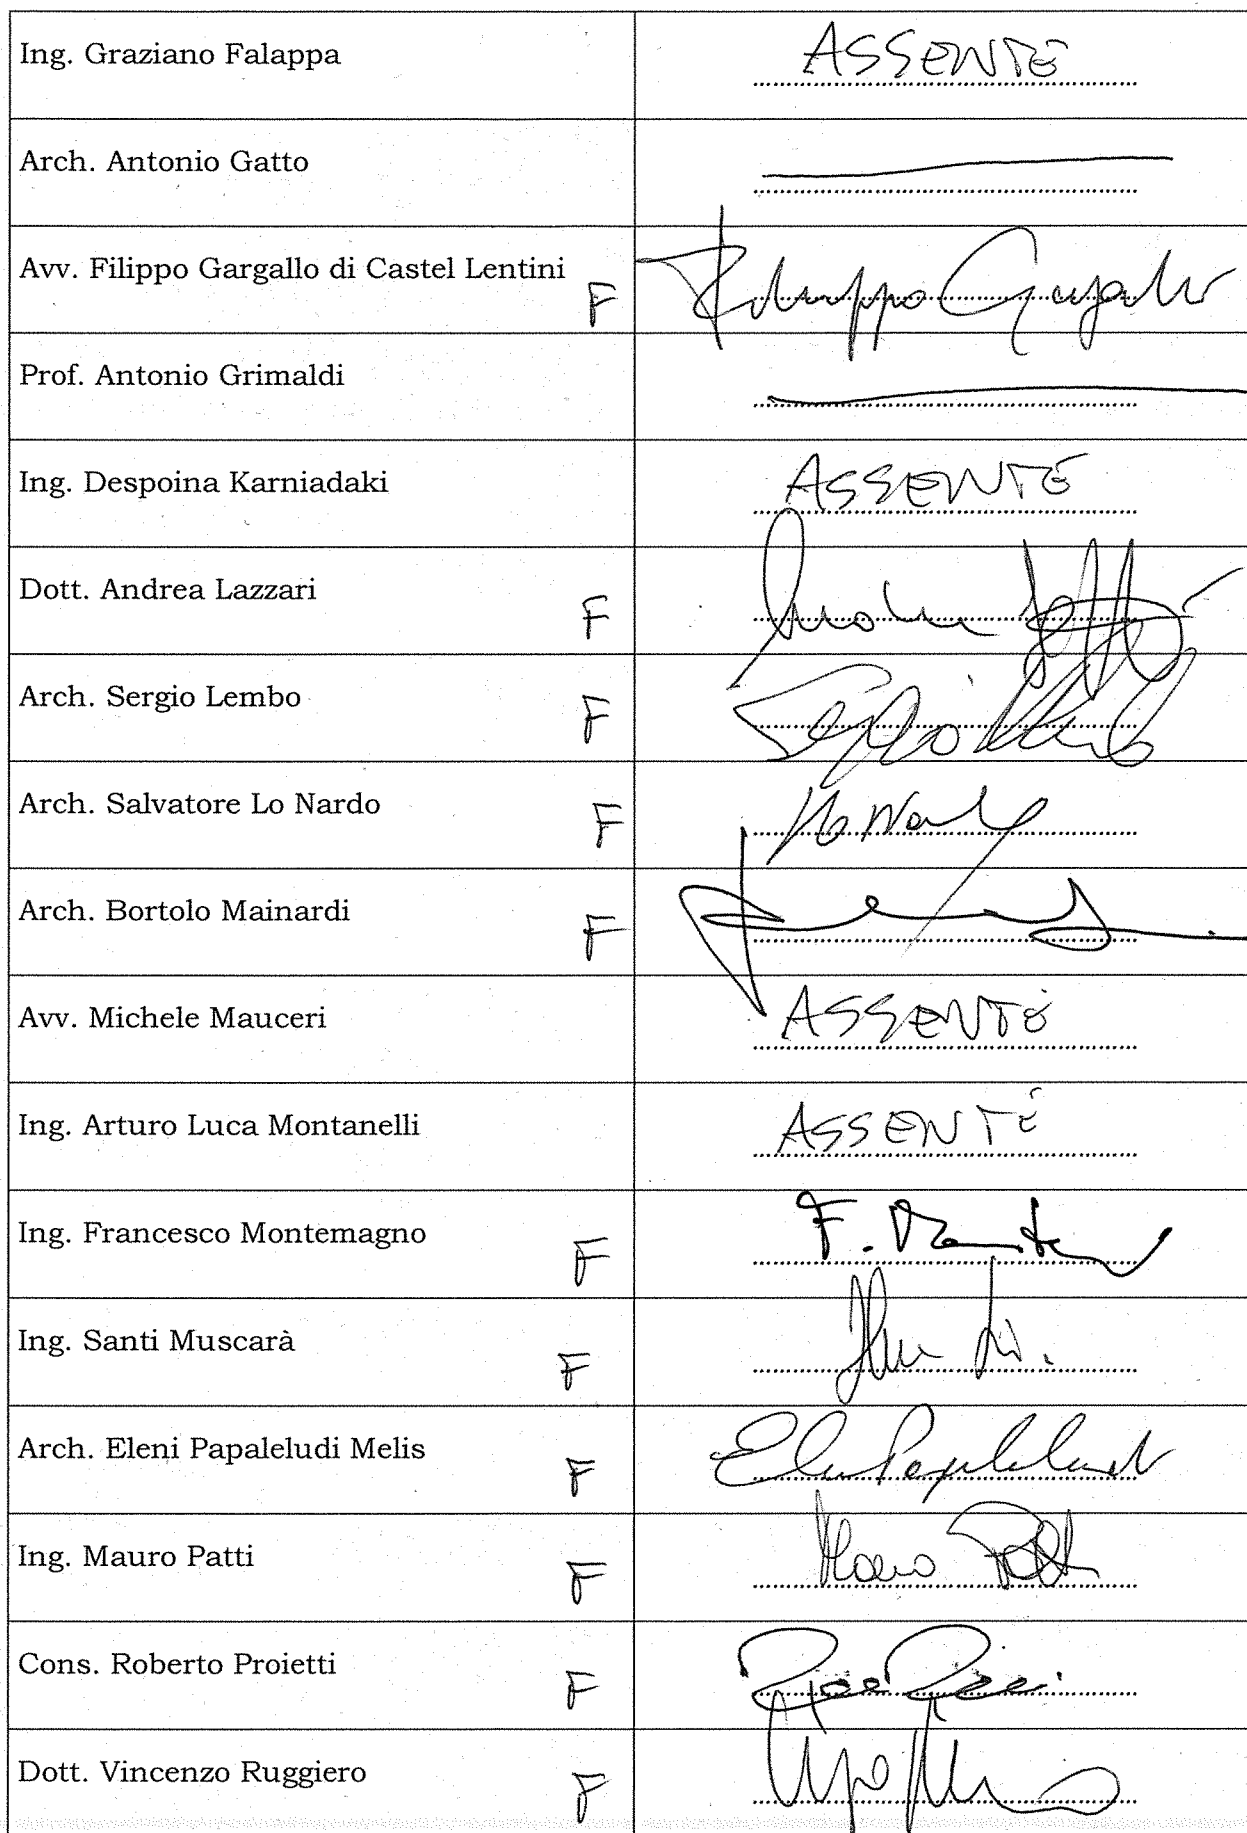 Ing. Graziano Falappa ASSENTE
Arch. Antonio Gatto
Avv. Filippo Gargallo di Castel Lentini F Filippo Gargallo
Prof. Antonio Grimaldi
Ing. Despoina Karniadaki ASSENTE
Dott. Andrea Lazzari F
Arch. Sergio Lembo F Sergio Lembo
Arch. Salvatore Lo Nardo F Lo Nardo
Arch. Bortolo Mainardi F
Avv. Michele Mauceri ASSENTE
Ing. Arturo Luca Montanelli ASSENTE
Ing. Francesco Montemagno F F.
Ing. Santi Muscarà F
Arch. Eleni Papaleludi Melis F
Ing. Mauro Patti F Mauro Patti
Cons. Roberto Proietti F
Dott. Vincenzo Ruggiero F